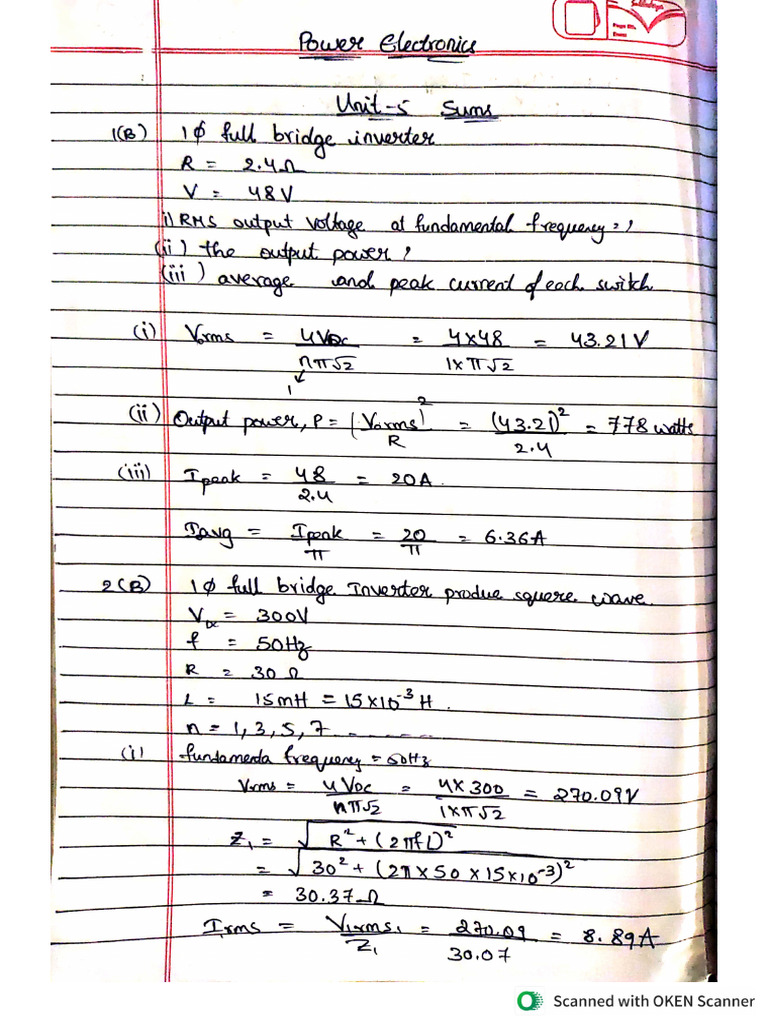 Power Electronics
Unit-5 Sums
1(B) 1ϕ full bridge inverter
R = 2.4Ω
V = 48V
i) RMS output voltage at fundamental frequency = ?
(ii) the output power ?
(iii) average and peak current of each switch
(i) Vorms = 4VDC / nπ√2 = 4×48 / 1×π√2 = 43.21V
1
(ii) Output power, P = (Vorms)² / R = (43.21)² / 2.4 = 778 watts
(iii) Ipeak = 48 / 2.4 = 20A.
Iavg = Ipeak / π = 20 / π = 6.36A
2(B) 1ϕ full bridge Inverter produe square wave.
VDC = 300V
f = 50Hz
R = 30 Ω
L = 15mH = 15×10⁻³ H.
n = 1, 3, 5, 7 - - - - -
(i) fundamenta frequency = 50Hz
Vrms = 4VDC / nπ√2 = 4×300 / 1×π√2 = 270.09V
Z₁ = √R²+(2πfL)²
= √30² + (2π×50×15×10⁻³)²
= 30.37Ω
Irms = V1rms₁ / Z₁ = 270.09 / 30.07 = 8.89A
Scanned with OKEN Scanner